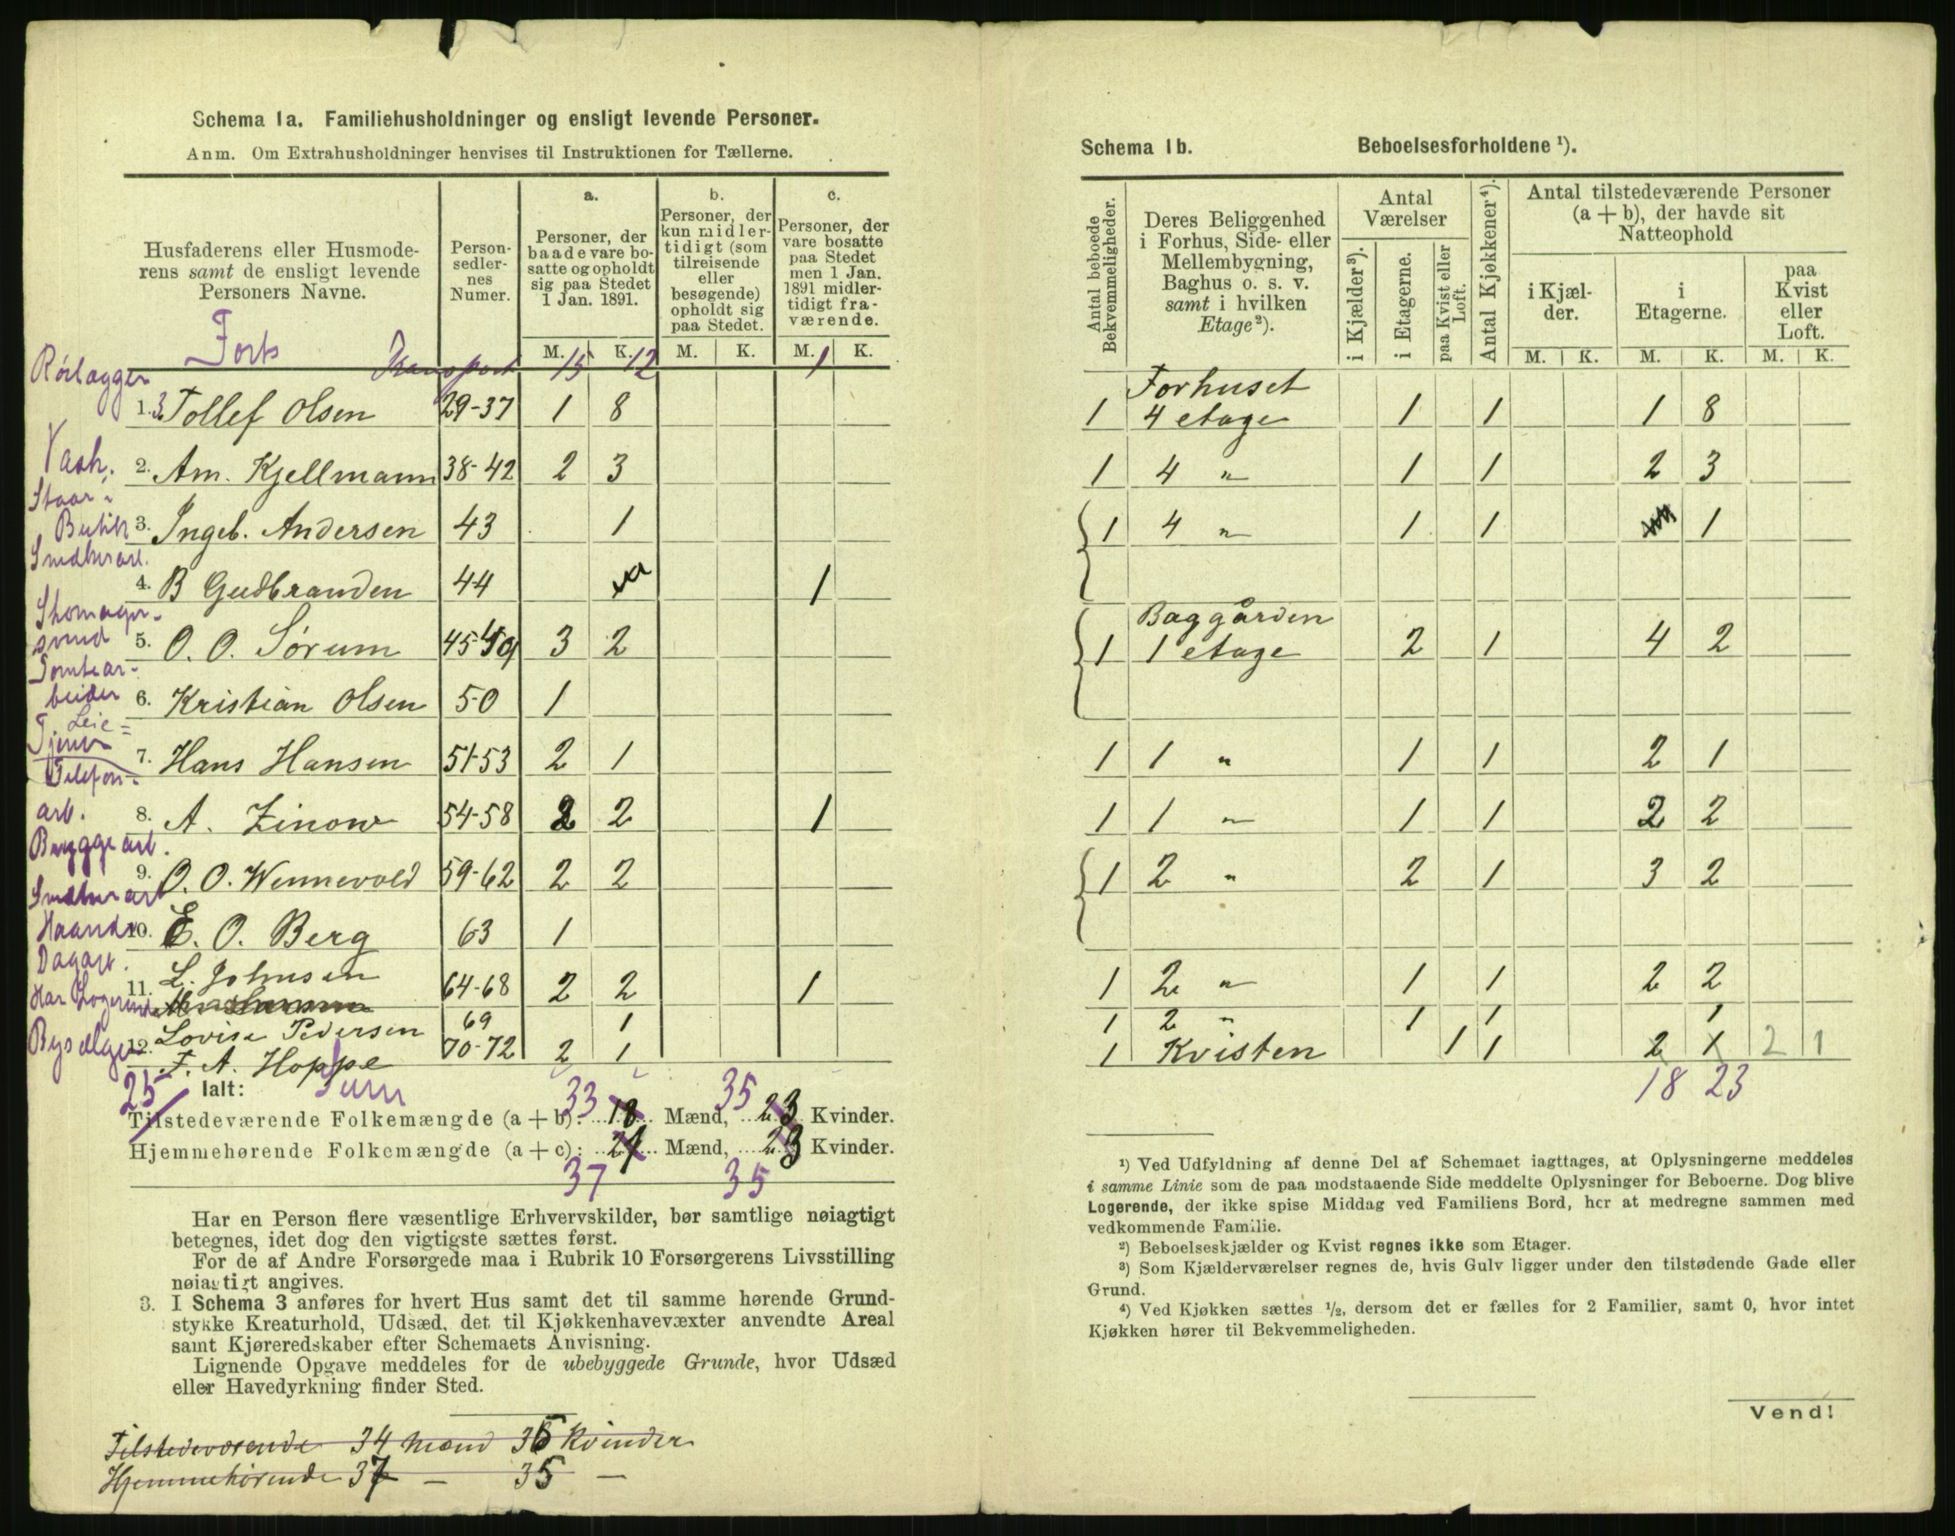 Schema 1a. Familiehusholdninger og ensligt levende Personer.
Anm. Om Extrahusholdninger henvises til Instruktionen for Tællerne.
Husfaderens eller Husmoderens samt de ensligt levende Personers Navne.
Personsedlernes Numer.
a. Personer, der baade vare bosatte og opholdt sig paa Stedet 1 Jan. 1891.
b. Personer, der kun midlertidigt (som tilreisende eller besøgende) opholdt sig paa Stedet.
c. Personer, der vare bosatte paa Stedet men 1 Jan. 1891 midlertidigt fraværende.
M. K. M. K. M. K.
Forts Transport 15 12 1
Rörlægger
1. Tollef Olsen 29-37 1 8
Vask.
2. Am. Kjellmann 38-42 2 3
Staar i Butik
3. Ingeb. Andersen 43 1
4. B Gudbranden 44 1
Skomagersvend
5. O. O. Sørum 45-49 3 2
Tomtearbeider
6. Kristian Olsen 50 1
Leie=
Tjener
7. Hans Hansen 51-53 2 1
Telefonarb.
8. A. Zinow 54-58 2 2 1
Bryggearb.
9. O. O. Wennevold 59-62 2 2
10. E. O. Berg 63 1
Dagarb.
11. L. Johnsen 64-68 2 2 1
Har Logerende
Lovise Pedersen 69 1
Bysælger
12. F. A. Hoppe 70-72 2 1
25 Ialt: Sum
Tilstedeværende Folkemængde (a + b): 33 18 Mænd, 35 23 Kvinder.
Hjemmehørende Folkemængde (a + c): 21 Mænd, 23 Kvinder.
37 35
Har en Person flere væsentlige Erhvervskilder, bør samtlige nøiagtigt
betegnes, idet dog den vigtigste sættes først.
For de af Andre Forsørgede maa i Rubrik 10 Forsørgerens Livsstilling
nøiagtigt angives.
3. I Schema 3 anføres for hvert Hus samt det til samme hørende Grund-
stykke Kreaturhold, Udsæd, det til Kjøkkenhavevæxter anvendte Areal
samt Kjøreredskaber efter Schemaets Anvisning.
Lignende Opgave meddeles for de ubebyggede Grunde, hvor Udsæd
eller Havedyrkning finder Sted.
Tilstedeværende 34 Mænd 35 Kvinder
Hjemmehørende 37 — 35 —
Schema 1b. Beboelsesforholdene ¹).
Antal beboede Bekvemmeligheder.
Deres Beliggenhed i Forhus, Side- eller Mellembygning, Baghus o. s. v. samt i hvilken Etage ²).
Antal Værelser
i Kjælder ³).
i Etagerne.
paa Kvist eller Loft.
Antal Kjøkkener ⁴).
Antal tilstedeværende Personer (a + b), der havde sit Natteophold
i Kjælder.
i Etagerne.
paa Kvist eller Loft.
M. K. M. K. M. K.
Forhuset
1 4 etage 1 1 1 8
1 4 " 1 1 2 3
1 4 " 1 1 1
Baggården
1 1 etage 2 1 4 2
1 1 " 1 1 2 1
1 1 " 1 1 2 2
1 2 " 2 1 3 2
1 2 " 1 1 2 2
1 2 " 1 1 1
1 Kvisten 1 1 2 1 2 1
18 23
¹) Ved Udfyldning af denne Del af Schemaet iagttages, at Oplysningerne meddeles
i samme Linie som de paa modstaaende Side meddelte Oplysninger for Beboerne. Dog blive
Logerende, der ikke spise Middag ved Familiens Bord, her at medregne sammen med
vedkommende Familie.
²) Beboelseskjælder og Kvist regnes ikke som Etager.
³) Som Kjælderværelser regnes de, hvis Gulv ligger under den tilstødende Gade eller
Grund.
⁴) Ved Kjøkken sættes ½, dersom det er fælles for 2 Familier, samt 0, hvor intet
Kjøkken hører til Bekvemmeligheden.
Vend!